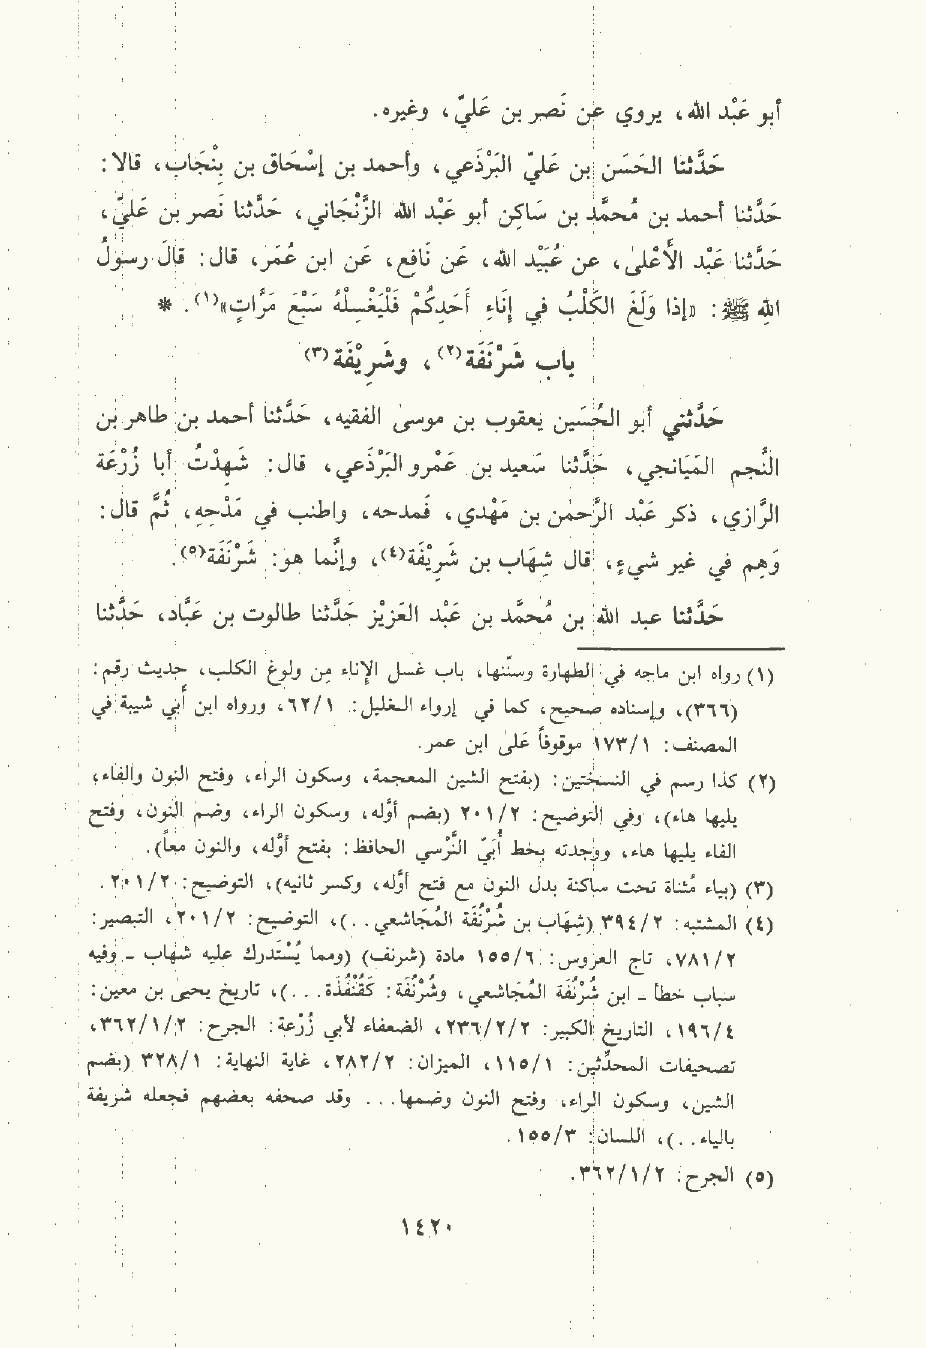 أبو عَبْد الله، يروي عن نَصر بن عَليّ، وغيره.
حَدَّثنا الحَسَن بن عَليّ البَرْذَعي، وأحمد بن إسْحَاق بن بِنْجَاب، قالا:
حَدَّثنا أحمد بن مُحمَّد بن سَاكِن أبو عَبْد الله الزَّنْجَاني، حَدَّثنا نَصر بن عَليّ،
حَدَّثنا عَبْد الأعْلىٰ، عن عُبَيْد الله، عَن نَافِع، عَن ابن عُمَر، قال: قالَ رسولُ
اللهِ ﷺ: «إذا وَلَغَ الكَلْبُ في إنَاءِ أحَدِكُمْ فَلْيَغْسِلْهُ سَبْعَ مَرَّاتٍ»(١). *
باب شَرْنَفَة(٢)، وشَرِيْفَة(٣)
حَدَّثني أبو الحُسَين يعقوب بن موسىٰ الفقيه، حَدَّثنا أحمد بن طاهر بن
النَّجم المَيَانجي، حَدَّثنا سَعيد بن عَمْرو البَرْذَعي، قال: شَهِدْتُ أبا زُرْعَة
الرَّازي، ذكر عَبْد الرَّحمٰن بن مَهْدي، فَمدحه، واطنب في مَدْحِهِ، ثُمَّ قال:
وَهِم في غير شيءٍ، قال شِهَاب بن شَرِيْفَة(٤)، وإنَّما هو: شَرْنَفَة(٥).
حَدَّثنا عبد الله بن مُحمَّد بن عَبْد العَزيْز حَدَّثنا طالوت بن عَبَّاد، حَدَّثنا
(١) رواه ابن ماجه في الطهارة وسنّنها، باب غسل الإناء مِن ولوغ الكلب، حديث رقم:
(٣٦٦)، وإسناده صحيح، كما في إرواء الغليل: ٦٢/١، ورواه ابن أبي شيبة في
المصنف: ١٧٣/١ موقوفاً عَلىٰ ابن عمر.
(٢) كذا رسم في النسختين: (بفتح الشين المعجمة، وسكون الراء، وفتح النون والفاء،
يليها هاء)، وفي التوضيح: ٢٠١/٢ (بضم أوّله، وسكون الراء، وضم النون، وفتح
الفاء يليها هاء، ووجدته بخط أُبَيّ النَّرْسي الحافظ: بفتح أوّله، والنون معاً).
(٣) (بياء مُثناة تحت ساكنة بدل النون مع فتح أوّله، وكسر ثانيه)، التوضيح: ٢٠١/٢.
(٤) المشتبه: ٣٩٤/٢ (شِهَاب بن شُرْنُفَة المُجَاشعي..)، التوضيح: ٢٠١/٢، التبصير:
٧٨١/٢، تاج العروس: ١٥٥/٦ مادة (شرنف) (ومما يُسْتَدرك عليه شهاب - وفيه
سباب خطأ - ابن شُرْنُفَة المُجَاشعي، وشُرْنُفَة: كَقُنْفُذة...)، تاريخ يحيى بن معين:
١٩٦/٤، التاريخ الكبير: ٢٣٦/٢/٢، الضعفاء لأبي زُرْعة: الجرح: ٣٦٢/١/٢،
تصحيفات المحدِّثين: ١١٥/١، الميزان: ٢٨٢/٢، غاية النهاية: ٣٢٨/١ (بضم
الشين، وسكون الراء، وفتح النون وضمها... وقد صفحه بعضهم فجعله شريفة
بالياء..)، اللسان: ١٥٥/٣.
(٥) الجرح: ٣٦٢/١/٢.
١٤٢٠